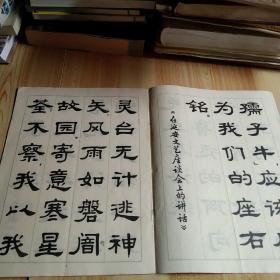 孺子牛」应该
为我们的座右
铭。
《在延安文艺座谈会上的讲话》
灵台无计逃神
矢风雨如磐闇
故园寄意寒星
荃不察我以我